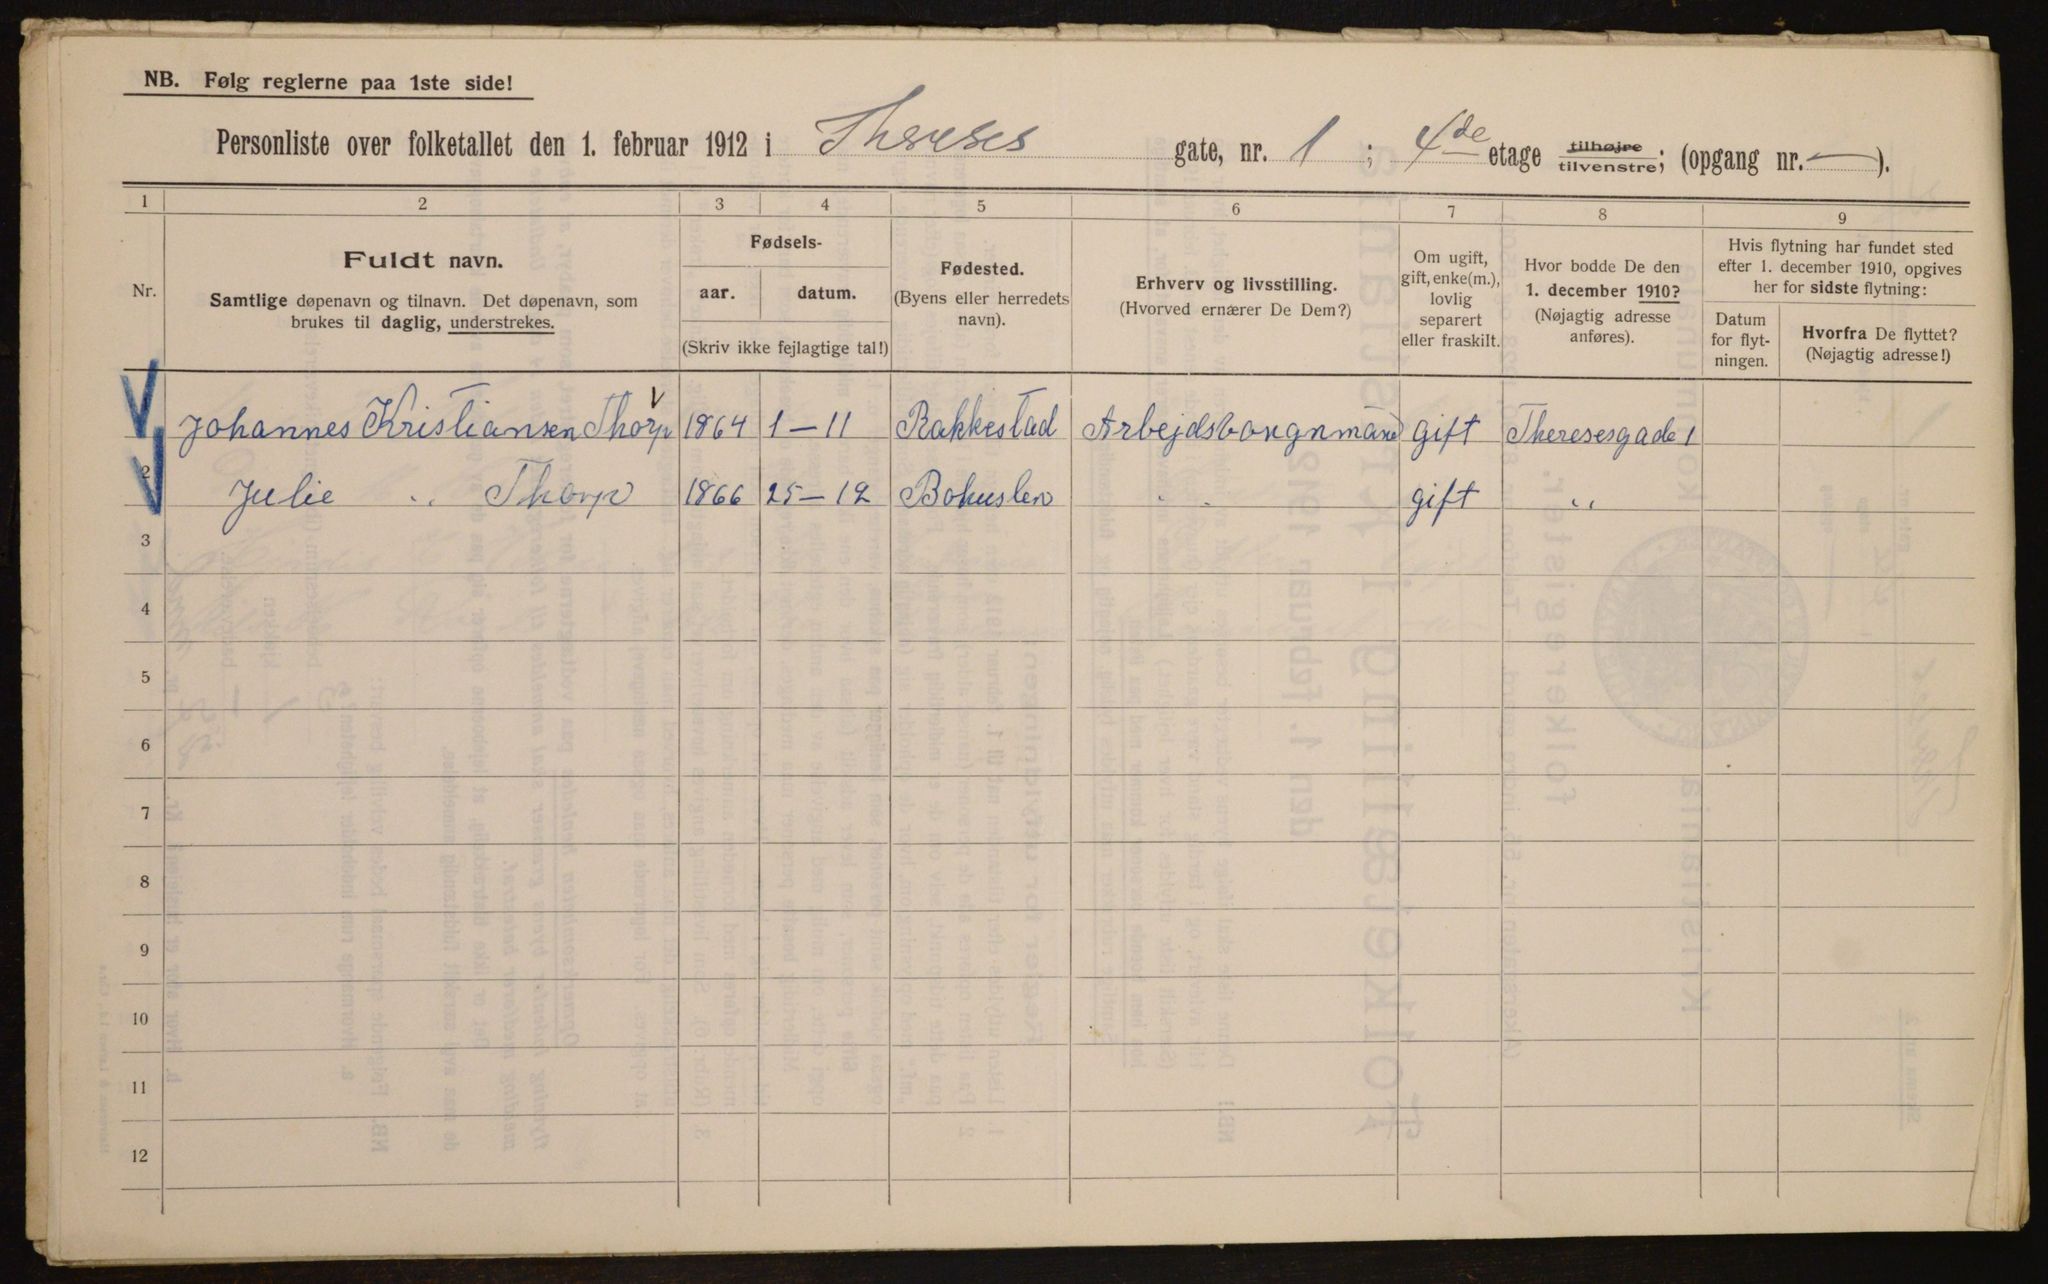 NB. Følg reglerne paa 1ste side!
Personliste over folketallet den 1. februar 1912 i Thereses gate, nr. 1 ; 4de etage tilhøjre/tilvenstre; (opgang nr. — ).
1 2 3 4 5 6 7 8 9
Nr.
Fuldt navn.
Samtlige døpenavn og tilnavn. Det døpenavn, som
brukes til daglig, understrekes.
Fødsels-
aar. datum.
(Skriv ikke fejlagtige tal!)
Fødested.
(Byens eller herredets
navn).
Erhverv og livsstilling.
(Hvorved ernærer De Dem?)
Om ugift,
gift, enke(m.),
lovlig
separert
eller fraskilt.
Hvor bodde De den
1. december 1910?
(Nøjagtig adresse
anføres).
Hvis flytning har fundet sted
efter 1. december 1910, opgives
her for sidste flytning:
Datum
for flyt-
ningen.
Hvorfra De flyttet?
(Nøjagtig adresse!)
Johannes Kristiansen Thorp 1864 1–11 Rakkestad gift Theresesgade 1
2 Julie „ Thorp 1866 25–12 Bohuslen „ gift „
3
4
5
6
7
8
9
10
11
12